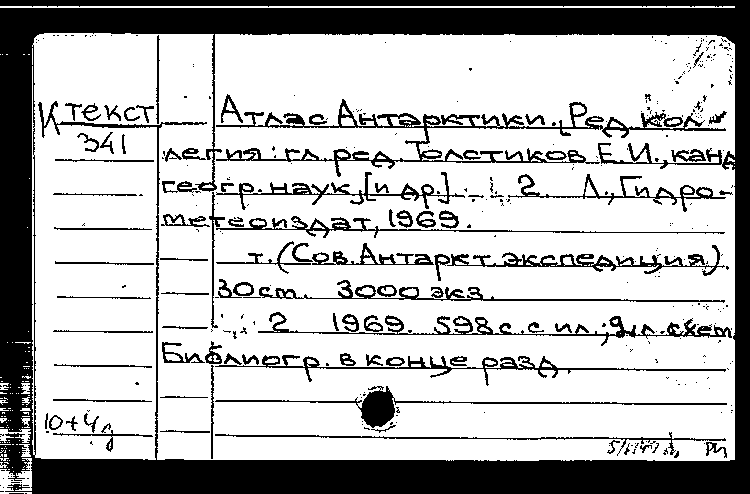 К текст
341
Атлас Антарктики. [Ред кол-
легия: гл. ред. Толстиков Е.И., канд
геогр. наук, [и др.] 2. Л., Гидро-
метеоиздат, 1969.
т. (Сов. Антаркт. экспедиция).
30 cm. 3000 экз.
2 1969. 598 с. с ил.; 9 л. схем.
Библиогр. в конце разд.
10+4д